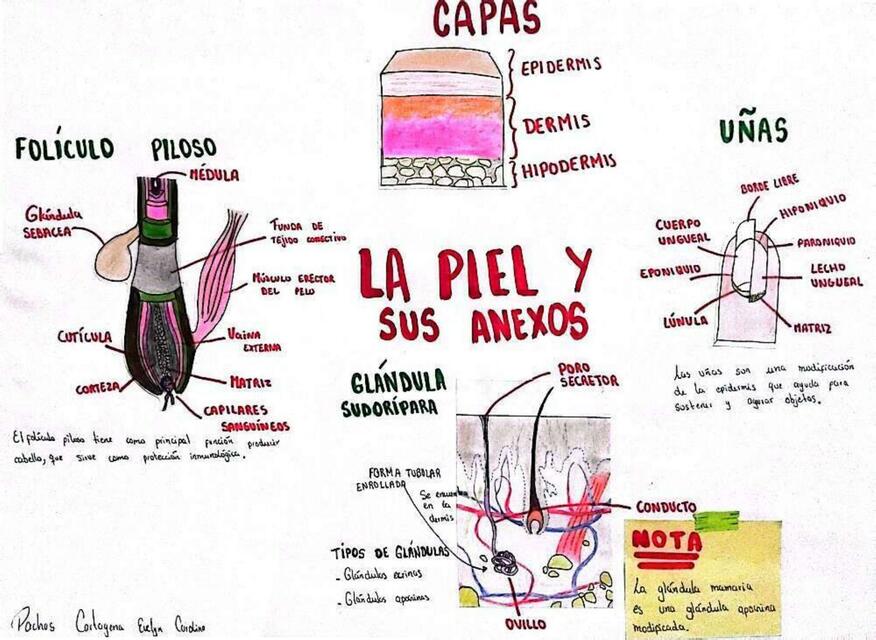 CAPAS
EPIDERMIS
DERMIS
HIPODERMIS
FOLÍCULO PILOSO
MÉDULA
Glándula
SEBACEA
FUNDA DE
TEJIDO CONECTIVO
MÚSCULO ERECTOR
DEL PELO
CUTÍCULA
VAINA
EXTERNA
CORTEZA
MATRIZ
CAPILARES
SANGUÍNEOS
El folículo piloso tiene como principal función producir
cabello, que sirve como protección inmunológica.
LA PIEL Y
SUS ANEXOS
UÑAS
BORDE LIBRE
HIPONIQUIO
CUERPO
UNGUEAL
PARONIQUIO
EPONIQUIO
LECHO
UNGUEAL
LÚNULA
MATRIZ
Las uñas son una modificación
de la epidermis que ayuda para
sostener y agarrar objetos.
GLÁNDULA
SUDORÍPARA
PORO
SECRETOR
FORMA TUBULAR
ENROLLADA
Se encuentra
en la
dermis
CONDUCTO
TIPOS DE GLÁNDULAS
- Glándulas ecrinas
- Glándulas apocrinas
OVILLO
NOTA
La glándula mamaria
es una glándula apocrina
modificada.
Cartagena Evelyn Carolina